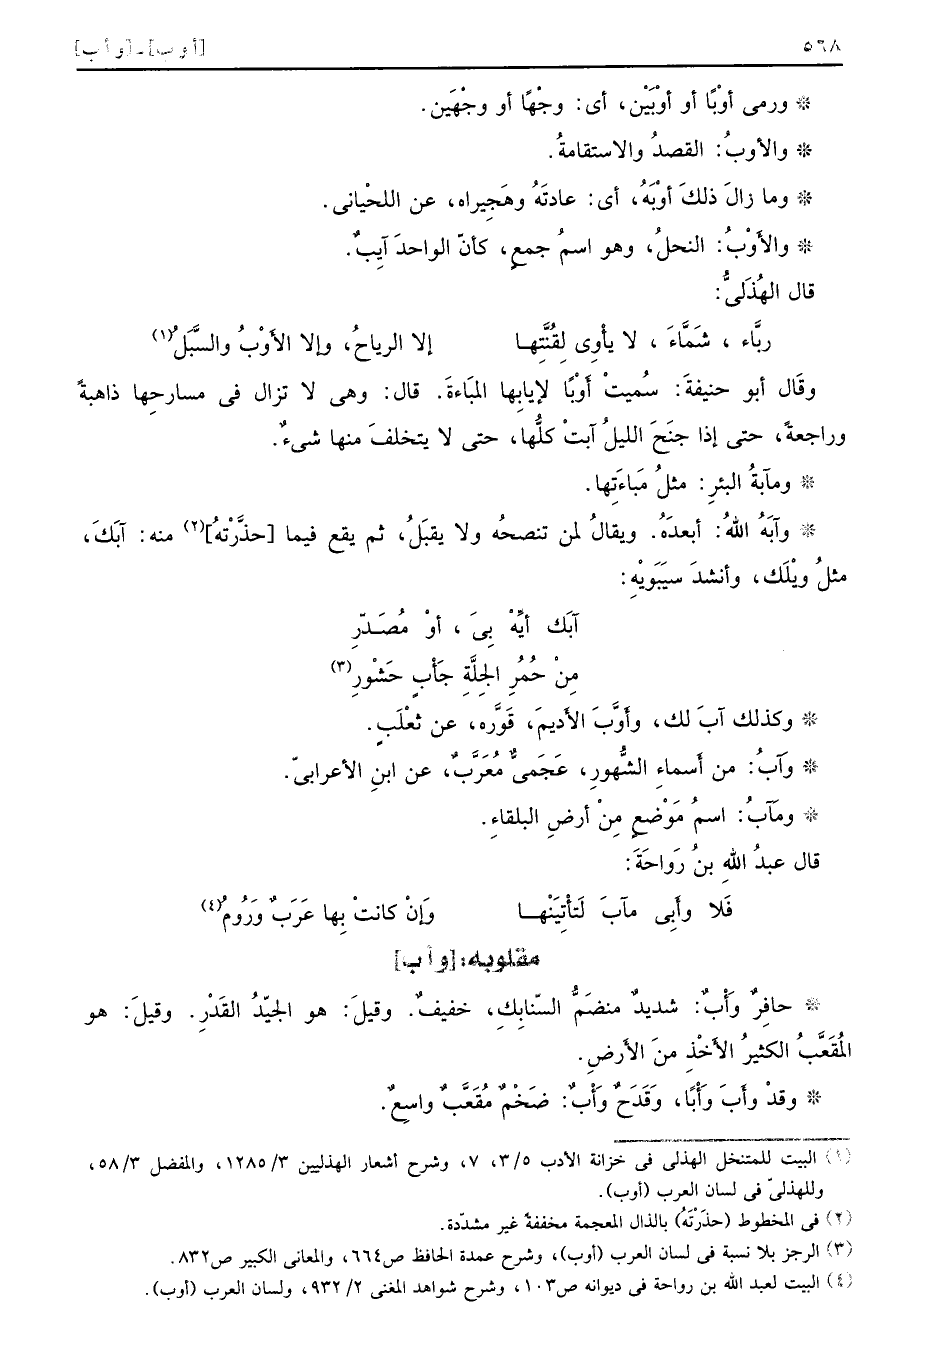 ٥٦٨ [أوب] - [وأب]
※ ورمى أوْبًا أو أوْبَيْن، أى: وجْهًا أو وجْهَين.
※ والأوبُ: القصدُ والاستقامةُ.
※ وما زالَ ذلكَ أوْبَهُ، أى: عادتَهُ وهَجِيراه، عن اللحْيانى.
※ والأَوْبُ: النحلُ، وهو اسمُ جمعٍ، كأنّ الواحدَ آيِبٌ.
قال الهُذَلىُّ:
ربَّاء ، شَمَّاءَ ، لا يأوِى لِقُنَّتِهـا إلا الرياحُ، وإلا الأَوْبُ والسَّبَلُ(١)
وقَال أبو حنيفةَ: سُميتْ أَوْبًا لإيابِها المَباءةَ. قال: وهى لا تزال فى مسارحِها ذاهبةً
وراجعةً، حتى إذا جنَحَ الليلُ آبتْ كلُّها، حتى لا يتخلفَ منها شىءٌ.
※ ومآبةُ البئرِ: مثلُ مَباءَتِها.
※ وآبَهُ اللهُ: أبعدَهُ. ويقالُ لمن تنصحُه ولا يقبَلُ، ثم يقع فيما [حذَّرْتهُ](٢) منه: آبَكَ،
مثلُ ويْلَك، وأنشدَ سيَبَويْهِ:
آبَك أيِّهْ بِىَ ، أوْ مُصَـدّرِ
مِنْ حُمُرِ الجِلَّةِ جَأْبٍ حَشْورِ(٣)
※ وكذلك آبَ لك، وأَوَّبَ الأديمَ، قَوَّره، عن ثعْلَبٍ.
※ وَآبُ: من أَسماءِ الشُّهورِ، عَجَمىٌّ مُعَرَّبٌ، عن ابنِ الأعرابىّ.
※ ومَآبُ: اسمُ مَوْضعٍ مِنْ أرضِ البلقاءِ.
قال عبدُ اللهِ بنُ رَواحَةَ:
فَلا وأَبِى مآبَ لَتَأْتِيَنْهـا وَإنْ كانتْ بِها عَرَبٌ وَرُومُ(٤)
مقلوبه: [و أ ب]
※ حافِرٌ وَأْبٌ: شديدٌ منضَمُّ السّنابِكِ، خفيفٌ. وقيلَ: هو الجيّدُ القَدْرِ. وقيلَ: هو
المُقَعَّبُ الكثيرُ الأخْذِ منَ الأرضِ.
※ وقدْ وأَبَ وَأْبًا، وَقَدَحٌ وَأْبٌ: ضَخْمٌ مُقَعَّبٌ واسِعٌ.
(١) البيت للمتنخل الهذلى فى خزانة الأدب ٣/٥، ٧، وشرح أشعار الهذليين ٣/ ١٢٨٥، والمفضل ٥٨/٣،
وللهذلىّ فى لسان العرب (أوب).
(٢) فى المخطوط (حذَرْتَهُ) بالذال المعجمة مخففة غير مشدّدة.
(٣) الرجز بلا نسبة فى لسان العرب (أوب)، وشرح عمدة الحافظ ص٦٦٤، والمعانى الكبير ص٨٣٢.
(٤) البيت لعبد الله بن رواحة فى ديوانه ص١٠٣، وشرح شواهد المغنى ٢/ ٩٣٢، ولسان العرب (أوب).